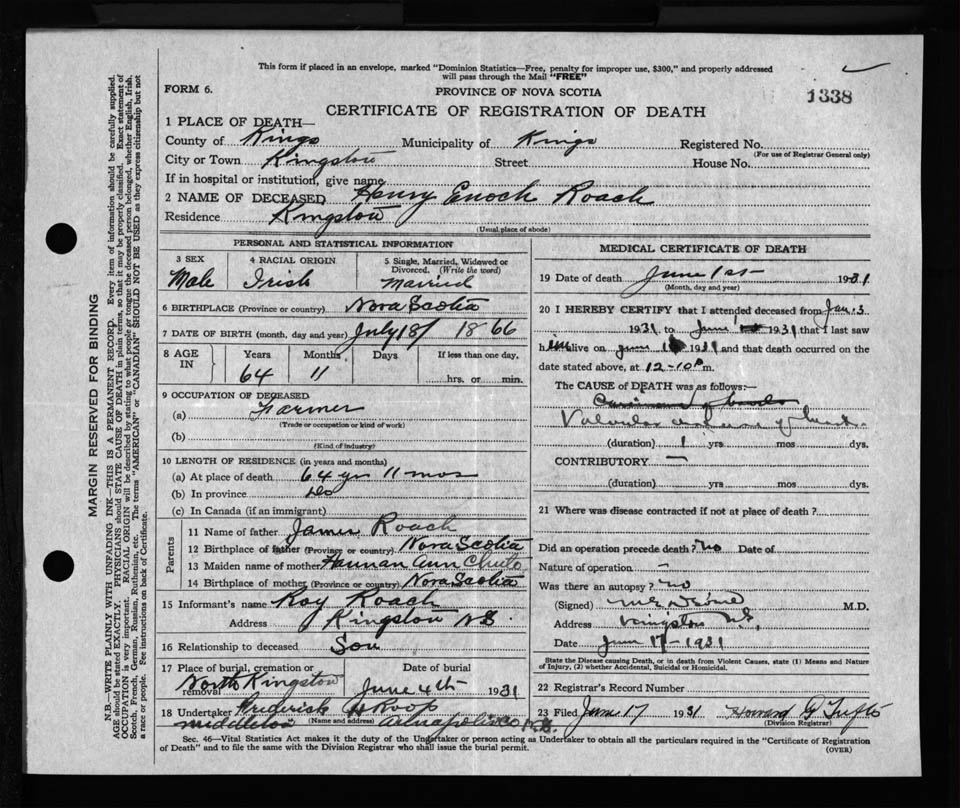 This form if placed in an envelope, marked "Dominion Statistics—Free, penalty for improper use, $300," and properly addressed
will pass through the Mail "FREE"
FORM 6.
PROVINCE OF NOVA SCOTIA
1338
CERTIFICATE OF REGISTRATION OF DEATH
1 PLACE OF DEATH—
County of Kings Municipality of Kings Registered No.
(For use of Registrar General only)
City or Town Kingston Street House No.
If in hospital or institution, give name
2 NAME OF DECEASED Henry Enoch Roach
Residence Kingston
(Usual place of abode)
PERSONAL AND STATISTICAL INFORMATION
3 SEX 4 RACIAL ORIGIN 5 Single, Married, Widowed or
Divorced. (Write the word)
Male Irish Married
6 BIRTHPLACE (Province or country) Nova Scotia
7 DATE OF BIRTH (month, day and year) July 18 1866
8 AGE IN Years Months Days If less than one day
64 11 hrs. or min.
9 OCCUPATION OF DECEASED
(a) Farmer
(Trade or occupation or kind of work)
(b)
(Kind of Industry)
10 LENGTH OF RESIDENCE (in years and months)
(a) At place of death 64 yrs 11 mos
(b) In province do
(c) In Canada (if an immigrant)
Parents
11 Name of father James Roach
12 Birthplace of father (Province or country) Nova Scotia
13 Maiden name of mother Hannah Ann
14 Birthplace of mother (Province or country) Nova Scotia
15 Informant's name Roy Roach
Address Kingston N.S.
16 Relationship to deceased Son
17 Place of burial, cremation or removal Date of burial
North Kingston June 4th 1931
18 Undertaker Frederick H Roop
(Name and address)
Middleton Annapolis Co N.S.
MEDICAL CERTIFICATE OF DEATH
19 Date of death June 1st 1931
(Month, day and year)
20 I HEREBY CERTIFY that I attended deceased from Jan. 3
1931 to June 1931 that I last saw
him alive on June 1931 and that death occurred on the
date stated above, at 12-10 m.
The CAUSE of DEATH was as follows:—
Valvular of heart
(duration) 1 yrs mos dys.
CONTRIBUTORY —
(duration) yrs. mos. dys.
21 Where was disease contracted if not at place of death?
Did an operation precede death? no Date of
Nature of operation –
Was there an autopsy? no
(Signed) M.D.
Address Kingston N.S.
Date June 17-1931
State the Disease causing Death, or in death from Violent Causes, state (1) Means and Nature
of Injury, (2) whether Accidental, Suicidal or Homicidal.
22 Registrar's Record Number
23 Filed June 17 1931 Howard G Tufts
(Division Registrar)
Sec. 46—Vital Statistics Act makes it the duty of the Undertaker or person acting as Undertaker to obtain all the particulars required in the "Certificate of Registration
of Death" and to file the same with the Division Registrar who shall issue the burial permit.
(OVER)
MARGIN RESERVED FOR BINDING
N.B.—WRITE PLAINLY WITH UNFADING INK—THIS IS A PERMANENT RECORD. Every item of information should be carefully supplied.
AGE should be stated EXACTLY. PHYSICIANS should STATE CAUSE OF DEATH in plain terms, so that it may be properly classified. Exact statement of
OCCUPATION is very important. RACIAL ORIGIN will be described by stating to what people or tongue the deceased person belonged, whether English, Irish,
Scotch, French, German, Russian, Ruthenian, etc. The terms "AMERICAN" or "CANADIAN" SHOULD NOT BE USED as they express citizenship but not
a race or people. See instructions on back of Certificate.